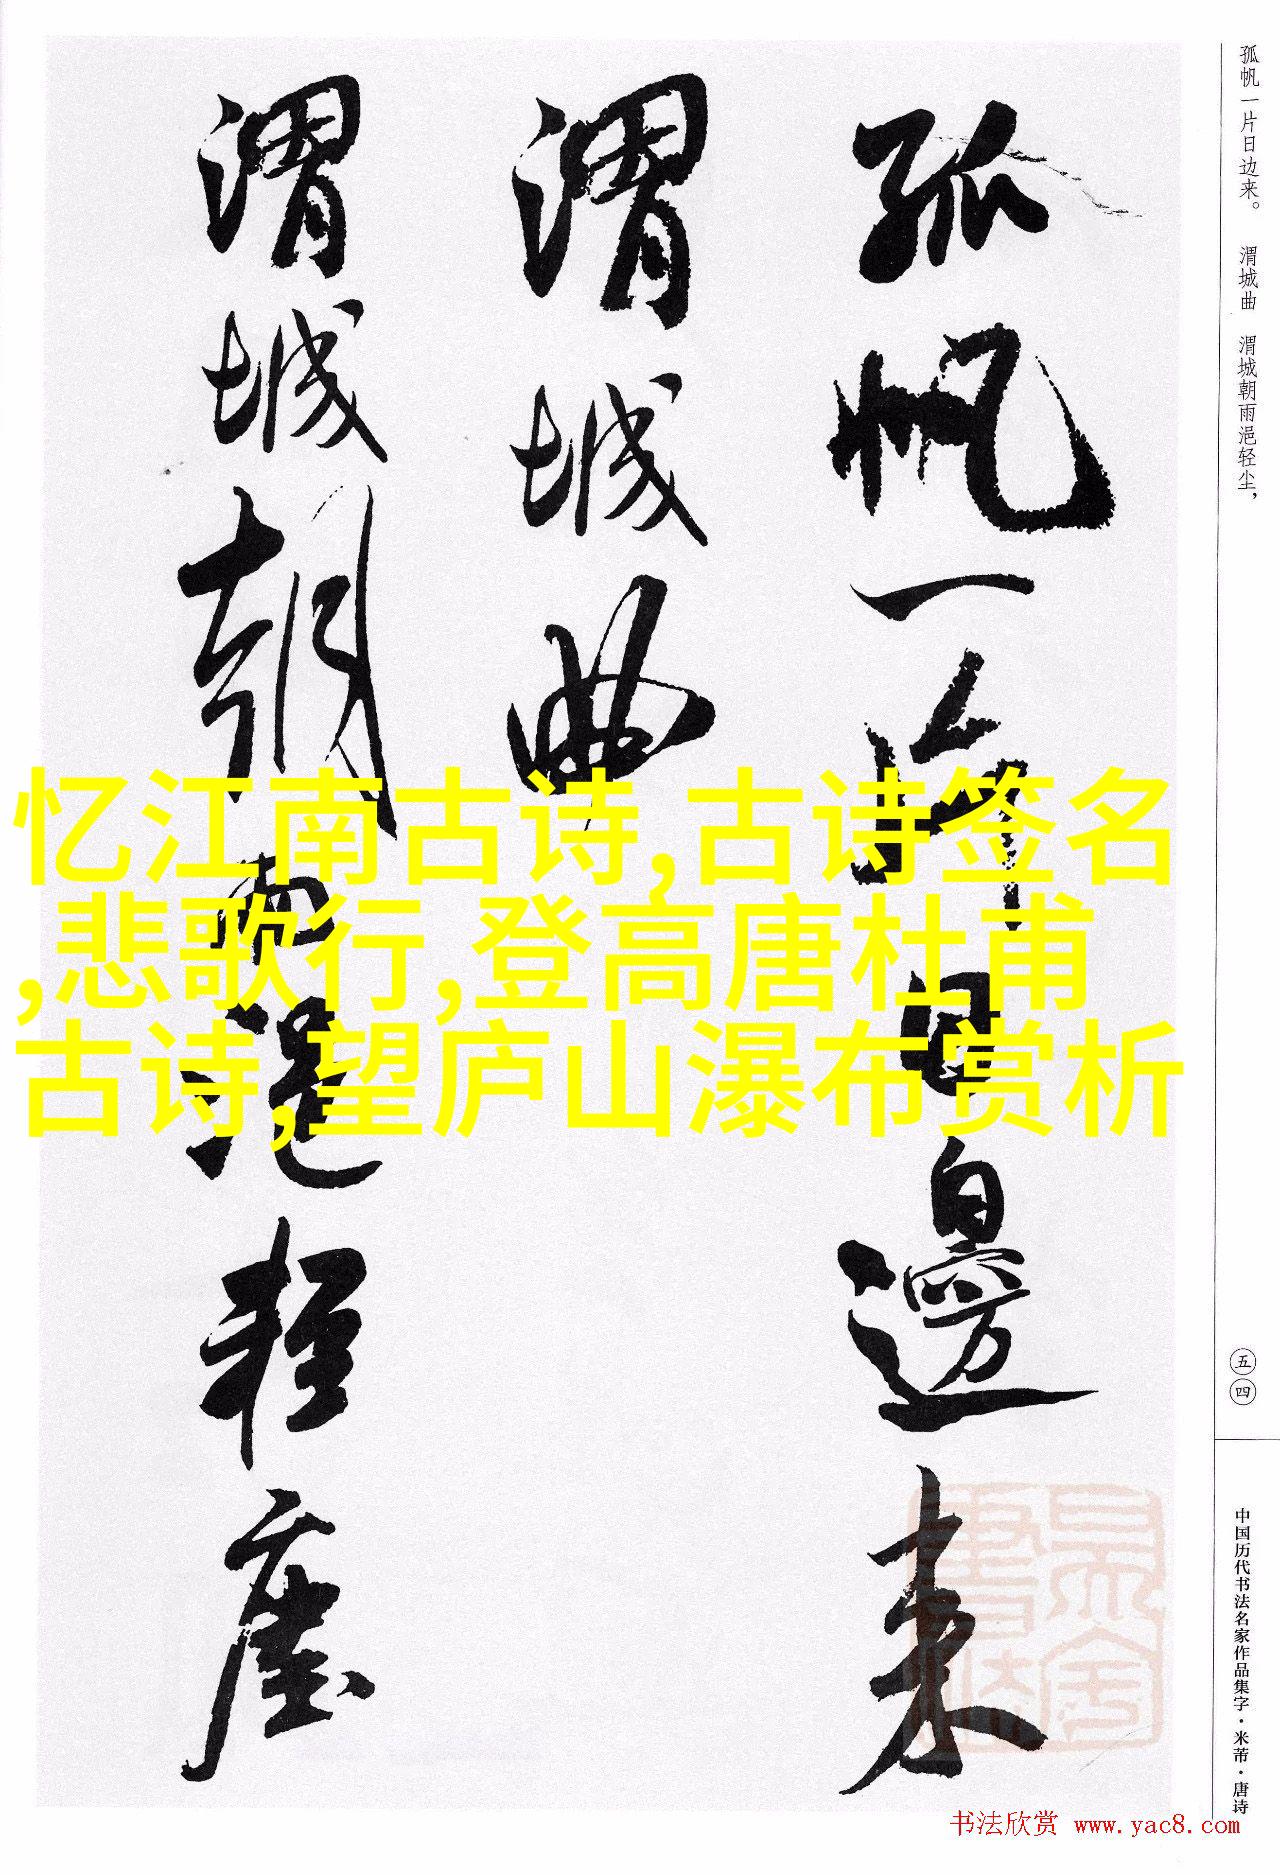 孤帆一片日边来。　渭城曲　渭城朝雨浥轻尘，
孤帆一片日邊来
渭城曲
渭城朝雨浥輕塵
忆江南古诗,古诗签名
,悲歌行,登高唐杜甫
古诗,望庐山瀑布赏析
五四
中国历代书法名家作品集字·米芾·唐诗
书法欣赏 www.yac8.com